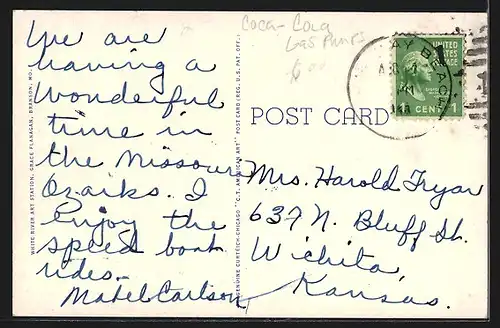 We are
having a
wonderful
time in
the Missouri
Ozarks. I
enjoy the
speed boat
rides.
Mabel Carlson
WHITE RIVER ART STATION, GRACE FLANAGAN, BRANSON, MO.
GENUINE CURTEICH-CHICAGO "C.T. AMERICAN ART" POST CARD (REG. U.S. PAT. OFF.)
Coca-Cola
Gas Pumps
POST CARD
UNITED
STATES
POSTAGE
1 CENT 1
Mrs. Harold Fryar
637 N. Bluff St.
Wichita,
Kansas.